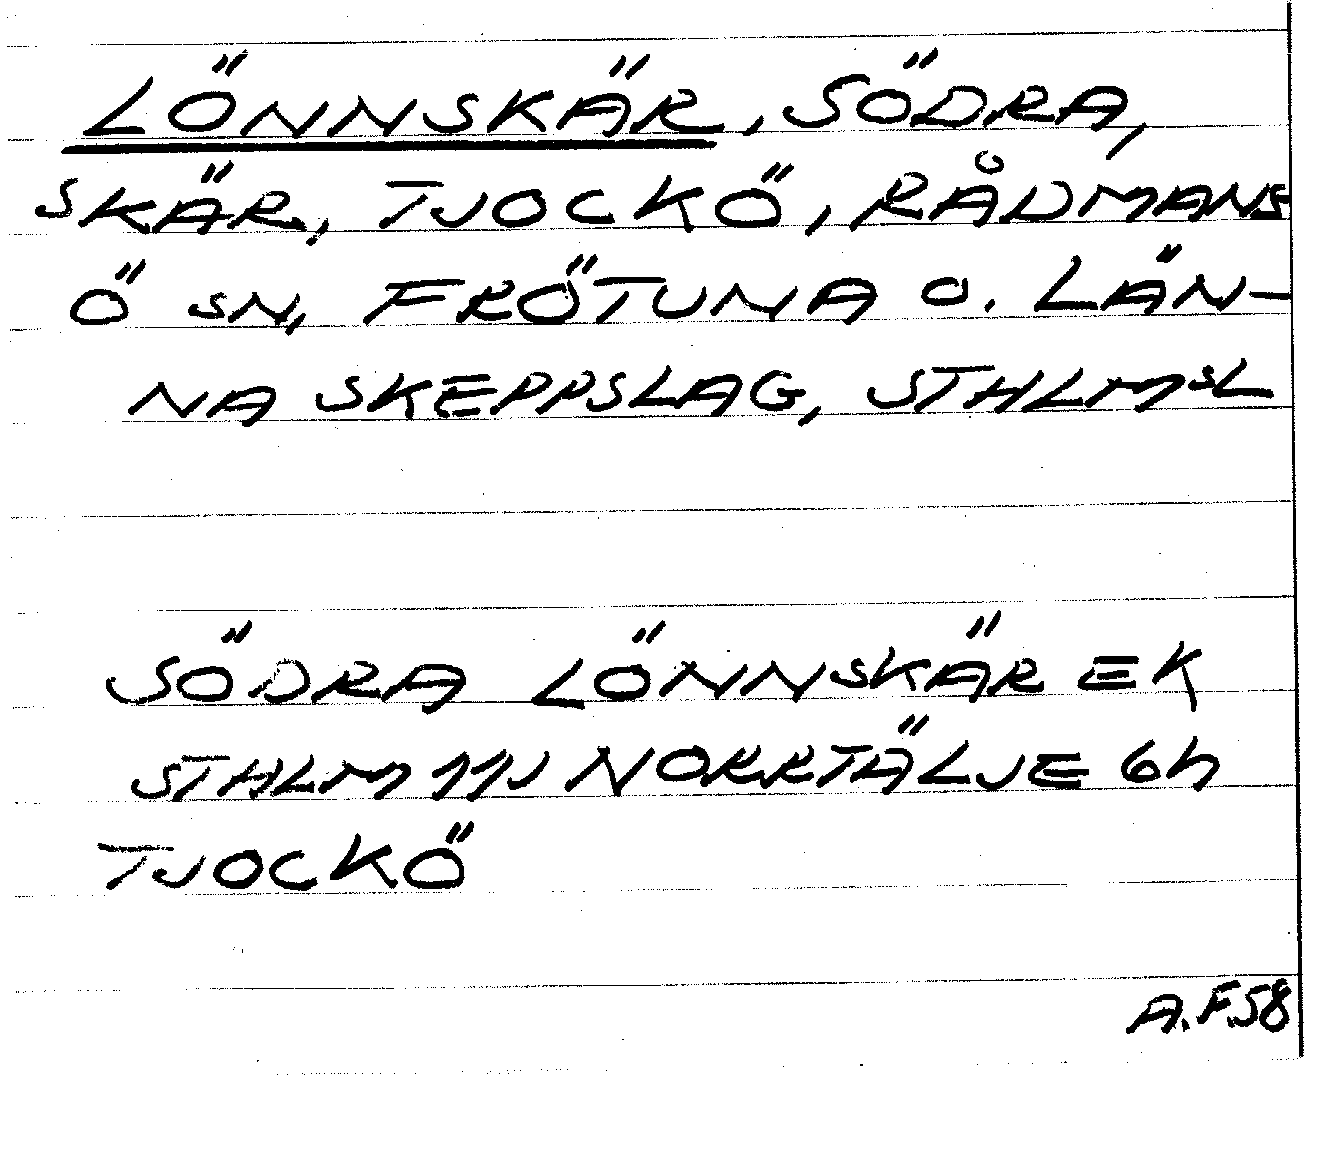 LÖNNSKÄR, SÖDRA,
SKÄR, TJOCKÖ, RÅDMANS
Ö SN, FRÖTUNA O. LÄN-
NA SKEPPSLAG, STHLMSL
SÖDRA LÖNNSKÄR EK
STHLM 11J NORRTÄLJE 6h
TJOCKÖ
A.F.58